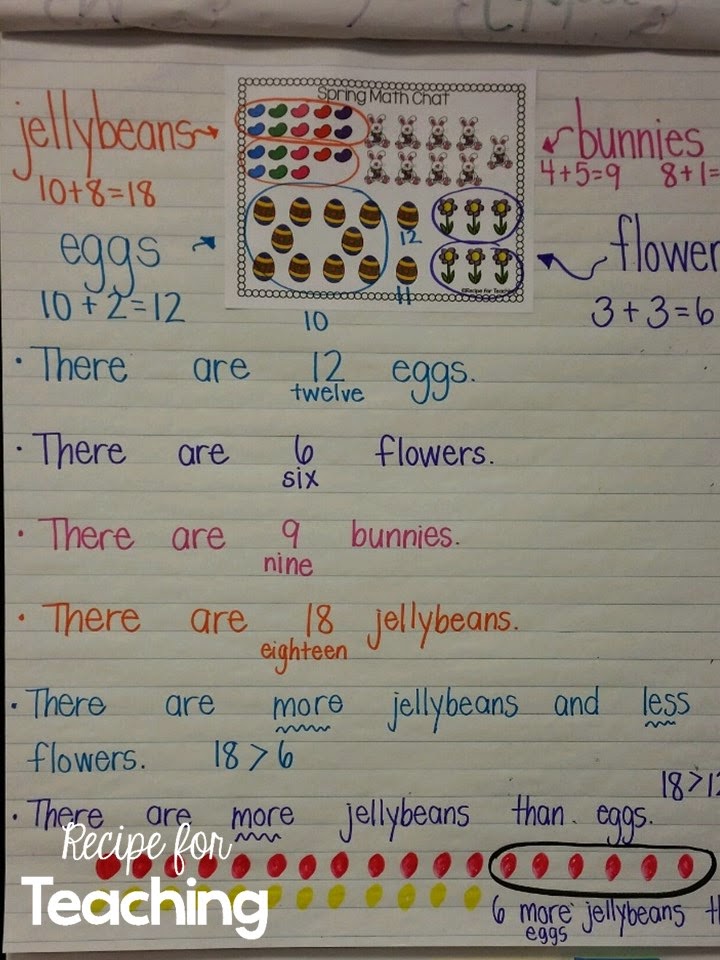 Spring Math Chat
jellybeans
10+8=18
bunnies
4+5=9 8+1=
eggs
10+2=12
flower
3+3=6
12
11
10
©Recipe for Teaching
• There are 12 eggs.
twelve
• There are 6 flowers.
six
• There are 9 bunnies.
nine
• There are 18 jellybeans.
eighteen
• There are more jellybeans and less
flowers. 18 > 6
18>12
• There are more jellybeans than eggs.
Recipe for
Teaching
6 more jellybeans th
eggs